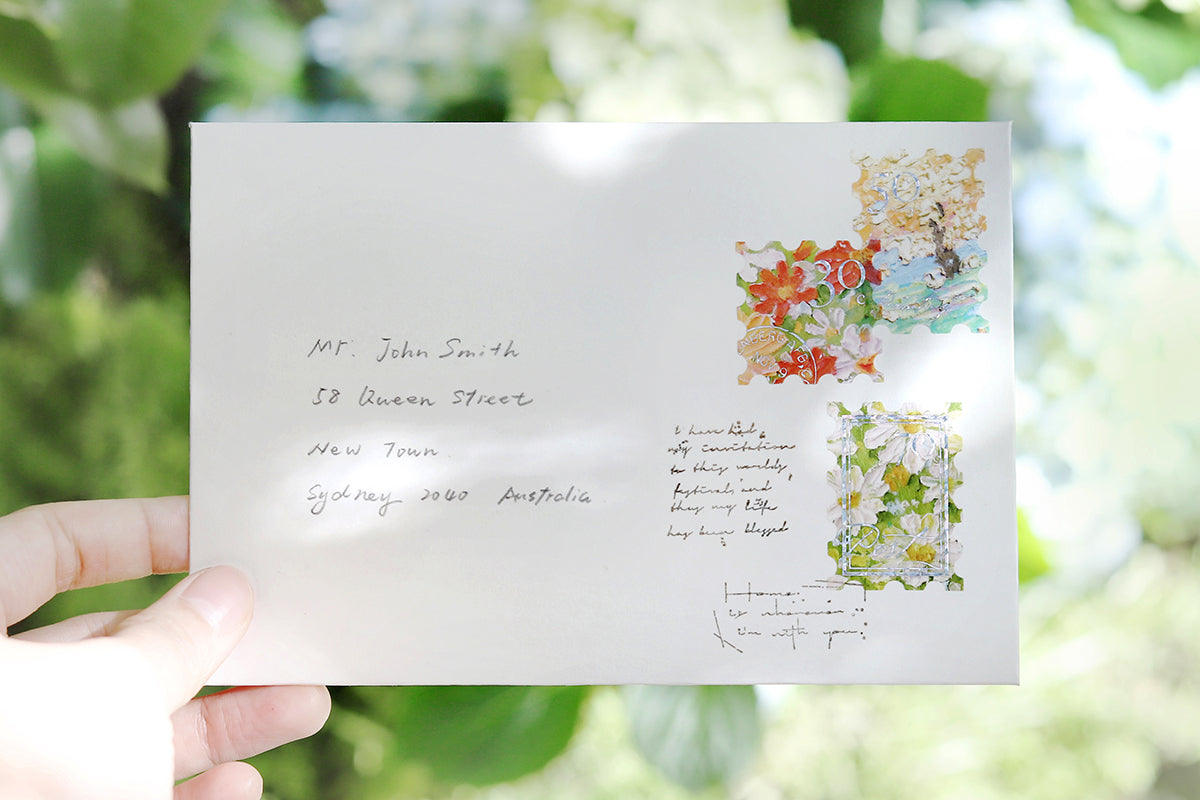 50
30
Mr. John Smith
58 Queen Street
New Town
Sydney 2040 Australia
I have had
my invitation
to this worlds
festivals and
thus my life
has been blessed
Home
is whenever
i'm with you.